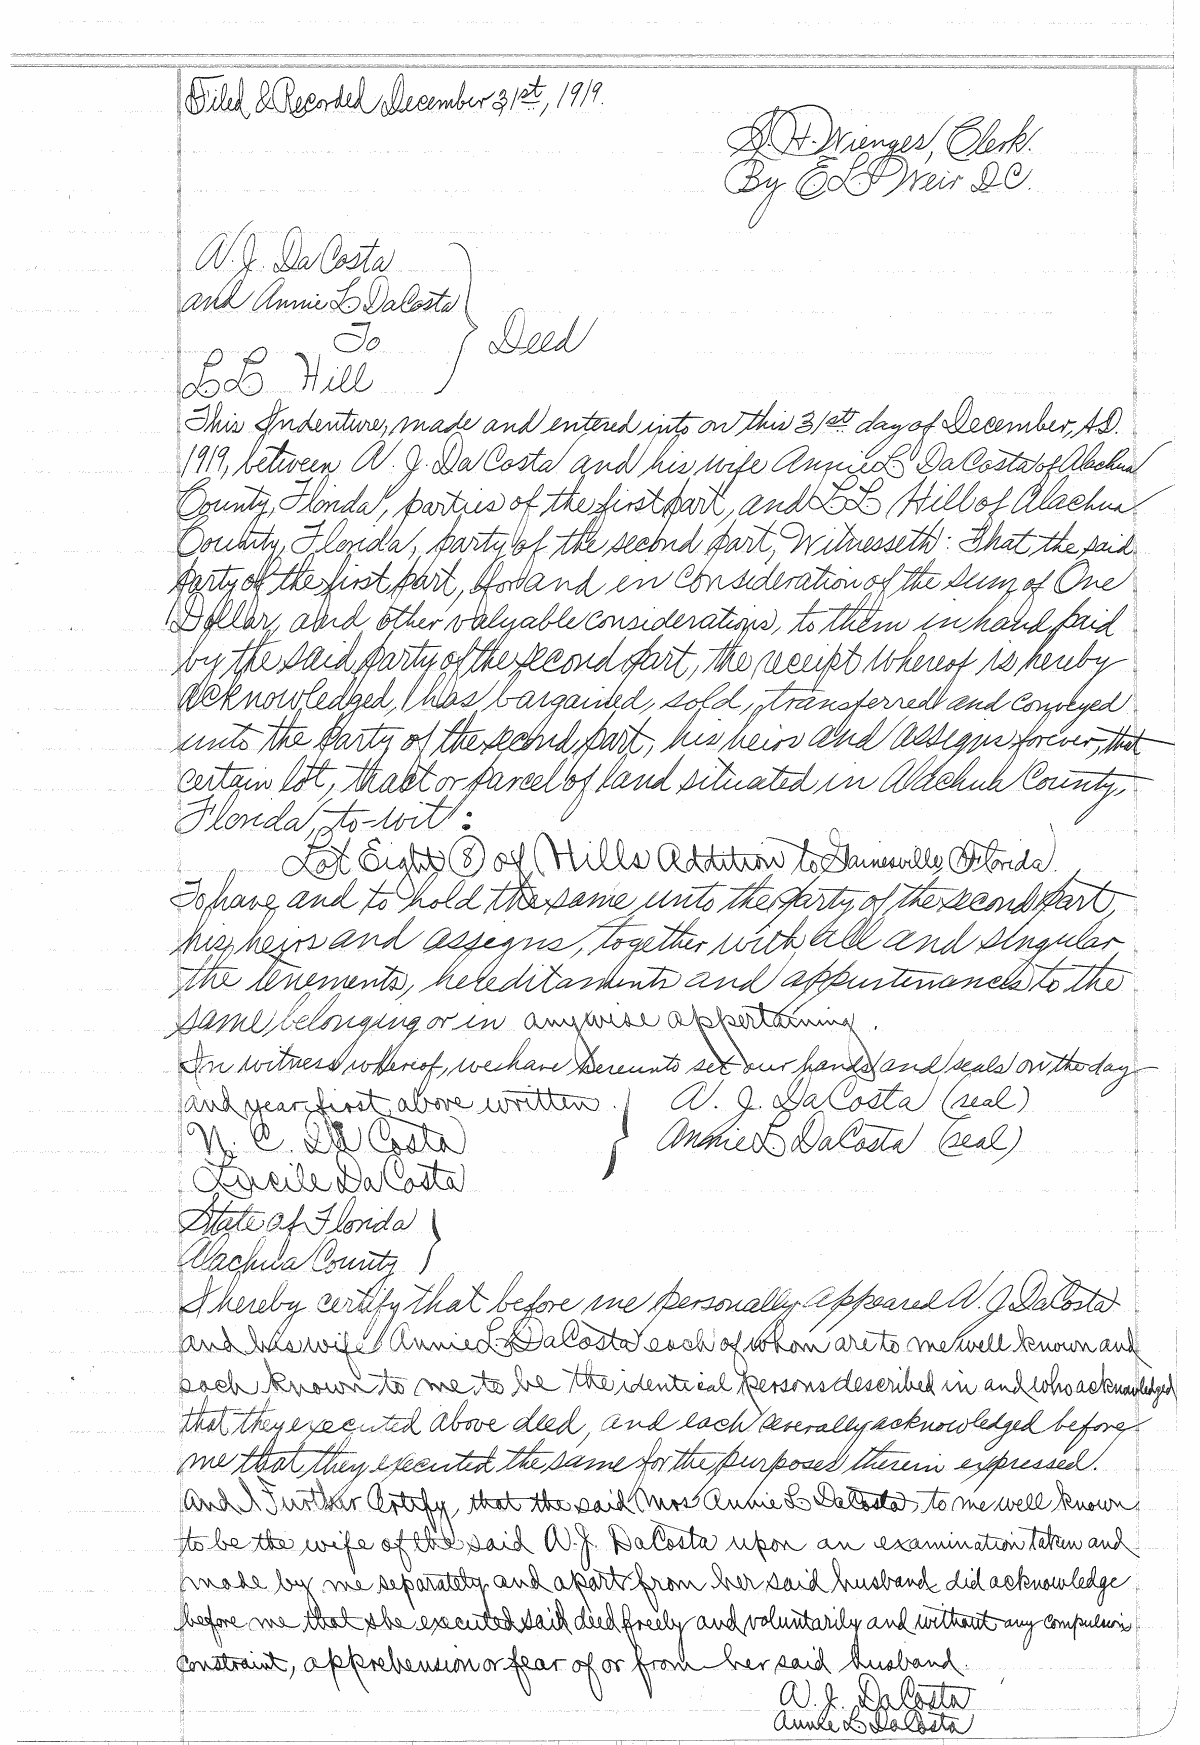 Filed & Recorded December 31st, 1919.
S. H. Wienges, Clerk.
By E L Weir D.C.
A. J. DaCosta
and Annie L DaCosta
To
Deed
L L Hill
This Indenture, made and entered into on this 31st day of December, A.D.
1919, between A. J. DaCosta and his wife Annie L DaCosta of Alachua
County, Florida, parties of the first part, and L L Hill of Alachua
County, Florida, party of the second part, Witnesseth: That the said
party of the first part, for and in consideration of the sum of One
Dollar, and other valuable considerations, to them in hand paid
by the said party of the second part, the receipt whereof is hereby
acknowledged, has bargained, sold, transferred and conveyed
unto the party of the second part, his heirs and assigns forever, that
certain lot, tract or parcel of land situated in Alachua County,
Florida, to-wit:
Lot Eight (8) of Hills Addition to Gainesville, Florida.
To have and to hold the same unto the party of the second part,
his heirs and assigns, together with all and singular
the tenements, hereditaments and appurtenances to the
same belonging or in anywise appertaining.
In witness whereof, we have hereunto set our hands and seals on the day
and year first above written. A. J. DaCosta (seal)
N. C. DaCosta Annie L DaCosta (seal)
Lucile DaCosta
State of Florida
Alachua County
I hereby certify that before me personally appeared A. J DaCosta
and his wife Annie L. DaCosta each of whom are to me well known and
each known to me to be the identical persons described in and who acknowledged
that they executed above deed, and each severally acknowledged before
me that they executed the same for the purposes therein expressed.
And I Further Certify, that the said Mrs Annie L DaCosta, to me well known
to be the wife of the said A. J. DaCosta upon an examination taken and
made by me separately and apart from her said husband did acknowledge
before me that she executed said deed freely and voluntarily and without any compulsion
constraint, apprehension or fear of or from her said husband.
A. J. DaCosta
Annie L DaCosta